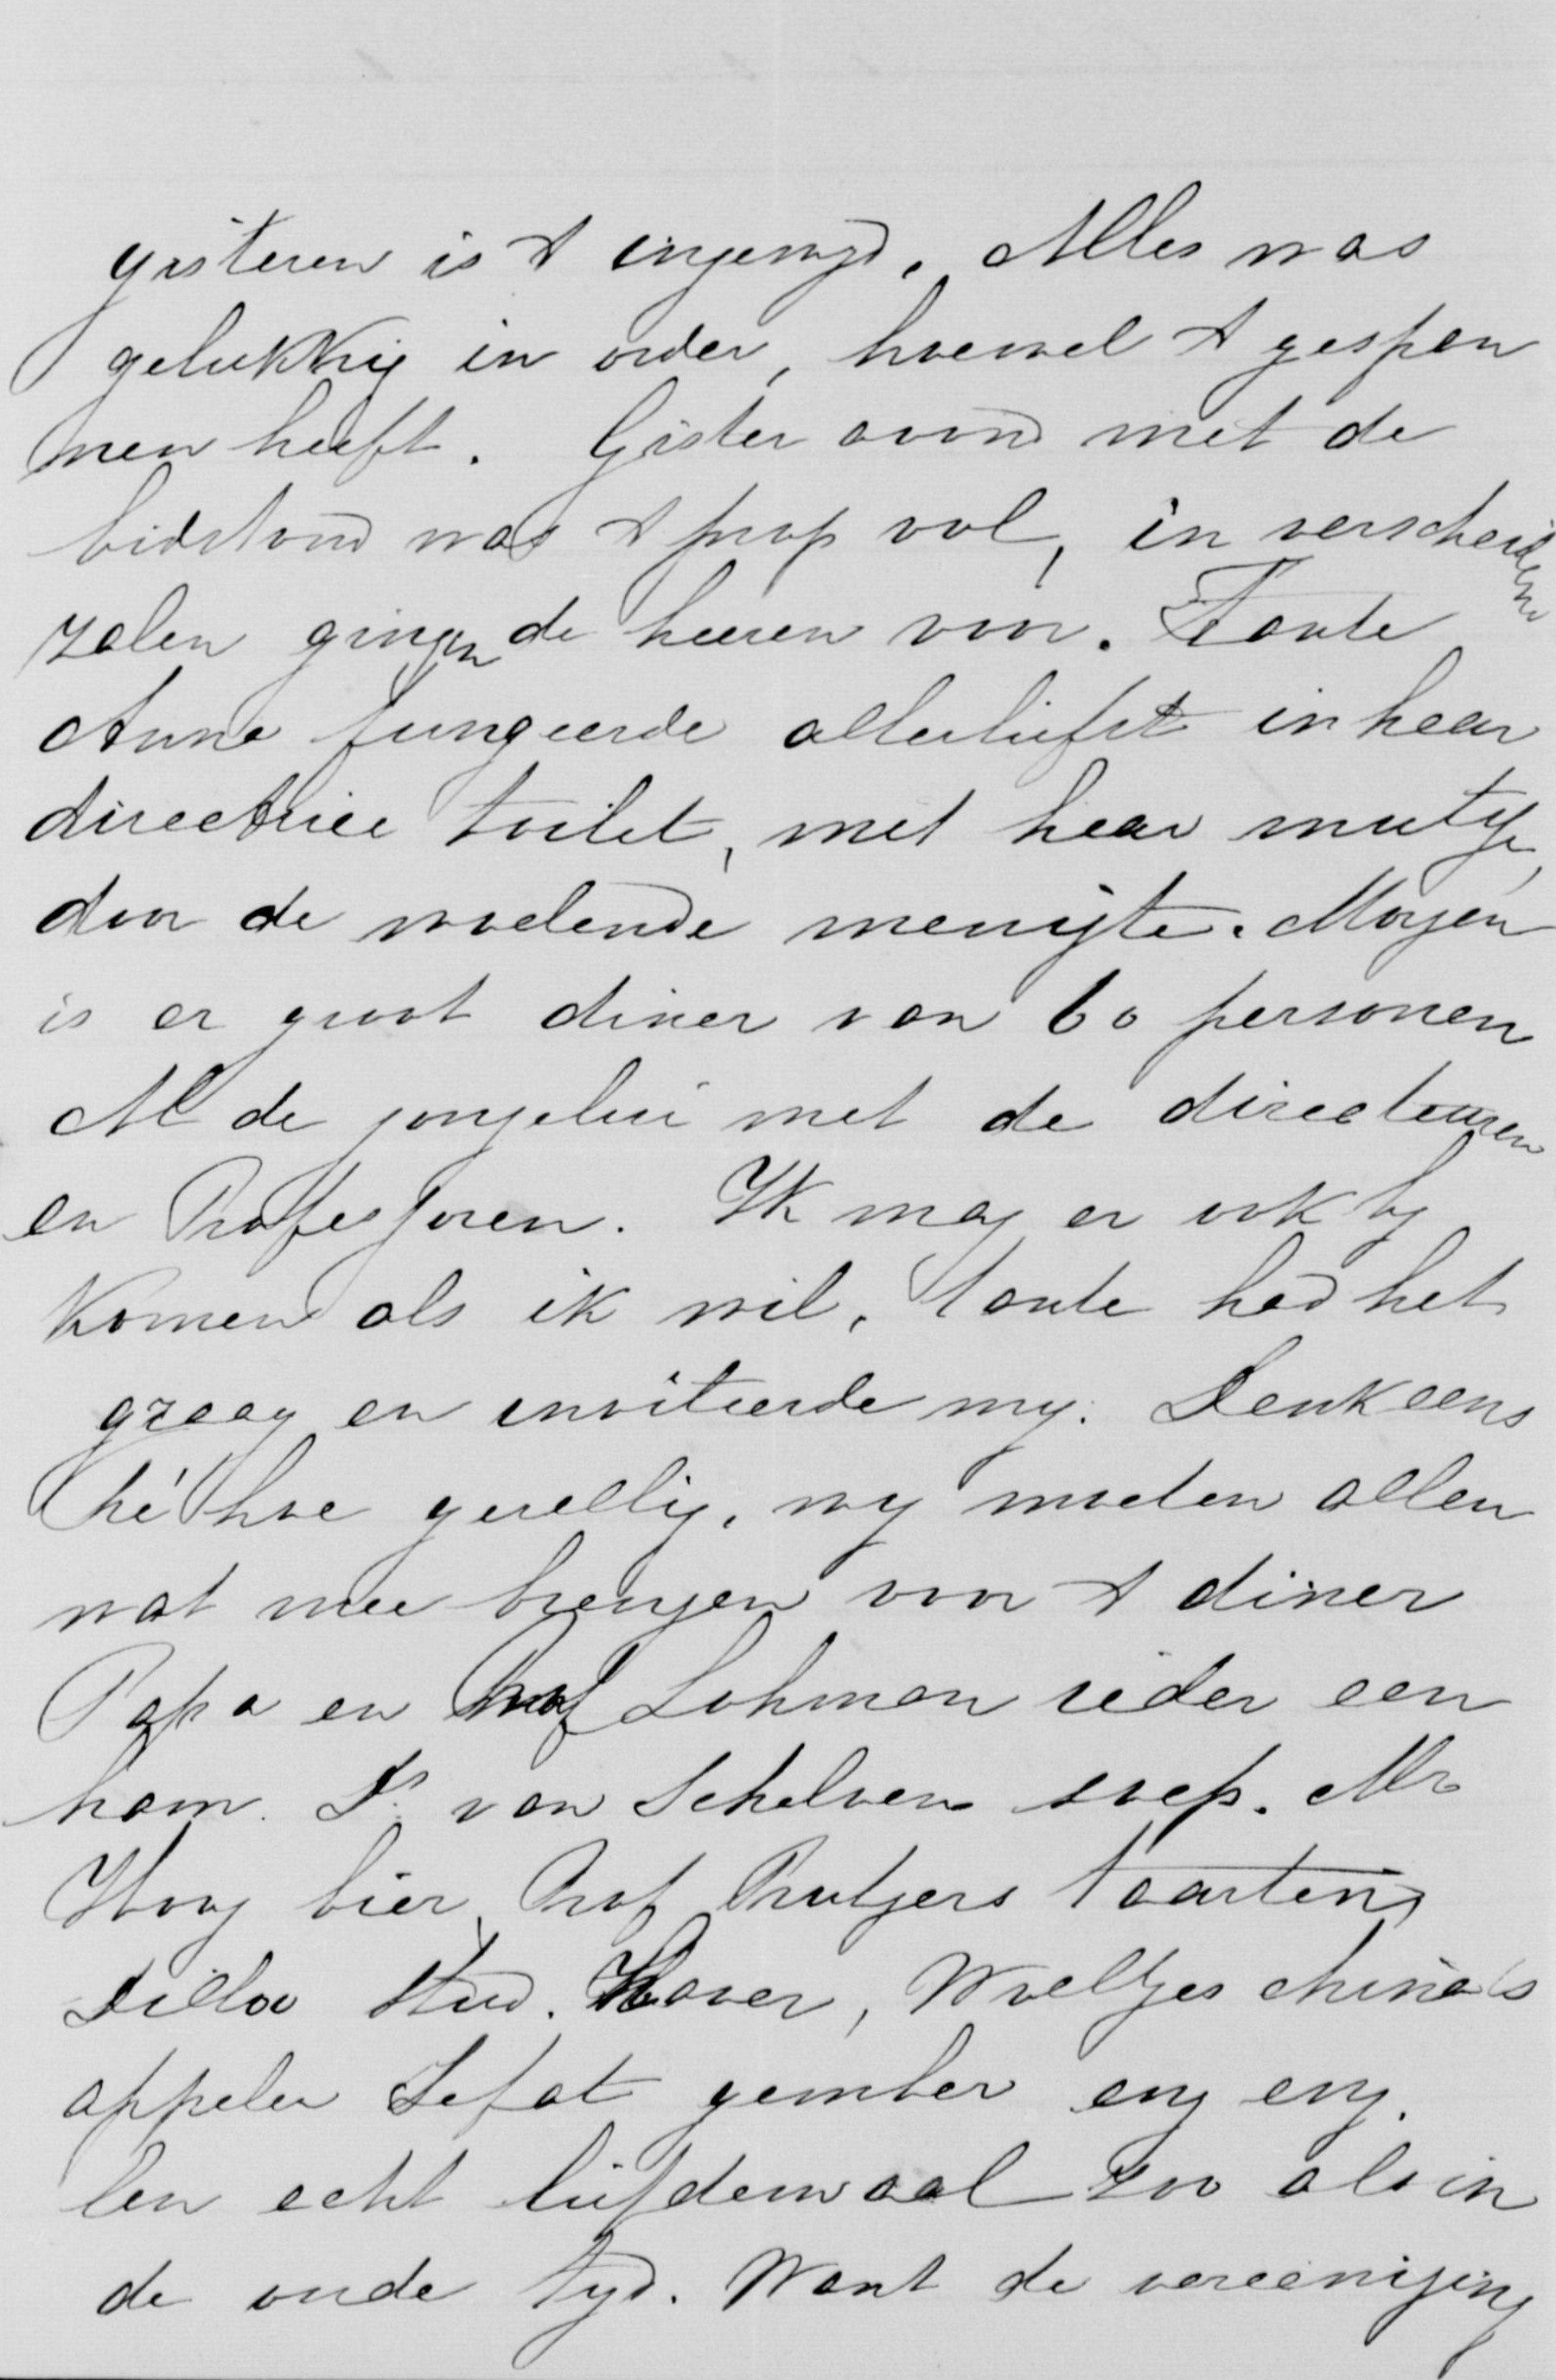 gisteren is 't ingewyd. Alles was
gelukkig in order, hoewel 't gespan
nen heeft. Gister avond met de
bidstond was 't prop vol, in verscheidene
zalen gingen de heeren voor. Tante
Anna fungeerde allerliefst in haar
directrice toilet, met haar mutsje,
door de woelende menigte. Morgen
is er groot diner van 60 personen
Al de jongelui met de directeuren
en Professoren. Ik mag er ook by
komen als ik wil, tante had het
graag en inviteerde my. Denk eens
hé hoe gezellig, wy moeten allen
wat mee brengen voor 't diner
Papa en Prof Lohman ieder een
ham. Ds. van Schelven soep. Mr
Hovy bier, Prof Rutgers taarten,
Dilloo stud. Haver, Woeltjes chinaas
appelen Sefat gember enz enz.
Een echt liefdemaal zoo als in
de oude tyd. Want de vereeniging